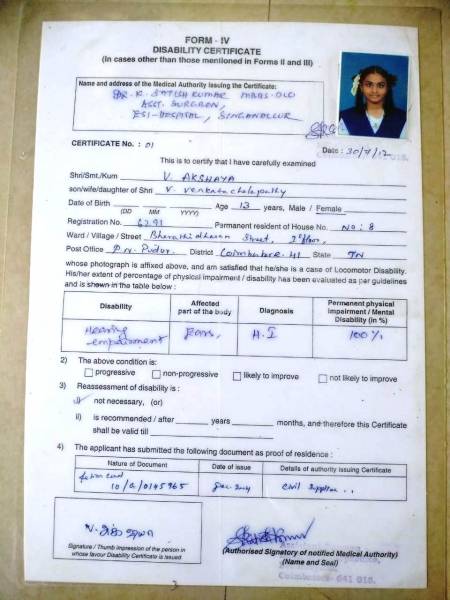 FORM - IV
DISABILITY CERTIFICATE
(In cases other than those mentioned in Forms II and III)
Name and address of the Medical Authority issuing the Certificate:
DR. K. SATISH KUMAR MBBS. DLO
ASST. SURGEON,
ESI-HOSPITAL, SINGANALLUR
CERTIFICATE No. : 01
Date : 30/7/12
This is to certify that I have carefully examined
Shri/Smt./Kum V. AKSHAYA
son/wife/daughter of Shri V. Venkatachalapathy
Date of Birth Age 13 years, Male / Female
(DD MM YYYY)
Registration No. 6291 Permanent resident of House No. NO: 8
Ward / Village / Street Bharathidhasan Street,
Post Office P.N. Pudur, District Coimbatore-41 State TN
whose photograph is affixed above, and am satisfied that he/she is a case of Locomotor Disability.
His/her extent of percentage of physical impairment / disability has been evaluated as per guidelines
and is shown in the table below :
Disability Affected part of the body Diagnosis Permanent physical impairment / Mental Disability (in %)
Hearing empairment Ears, H.I 100%
2) The above condition is:
progressive non-progressive likely to improve not likely to improve
3) Reassessment of disability is :
not necessary, (or)
ii) is recommended / after years months, and therefore this Certificate
shall be valid till
4) The applicant has submitted the following document as proof of residence :
Nature of Document Date of issue Details of authority issuing Certificate
10/G/0145965 Civil Supplies
V. அக்ஷயா
Signature / Thumb impression of the person in
whose favour Disability Certificate is issued
(Authorised Signatory of notified Medical Authority)
(Name and Seal)
Coimbatore- 641 018.